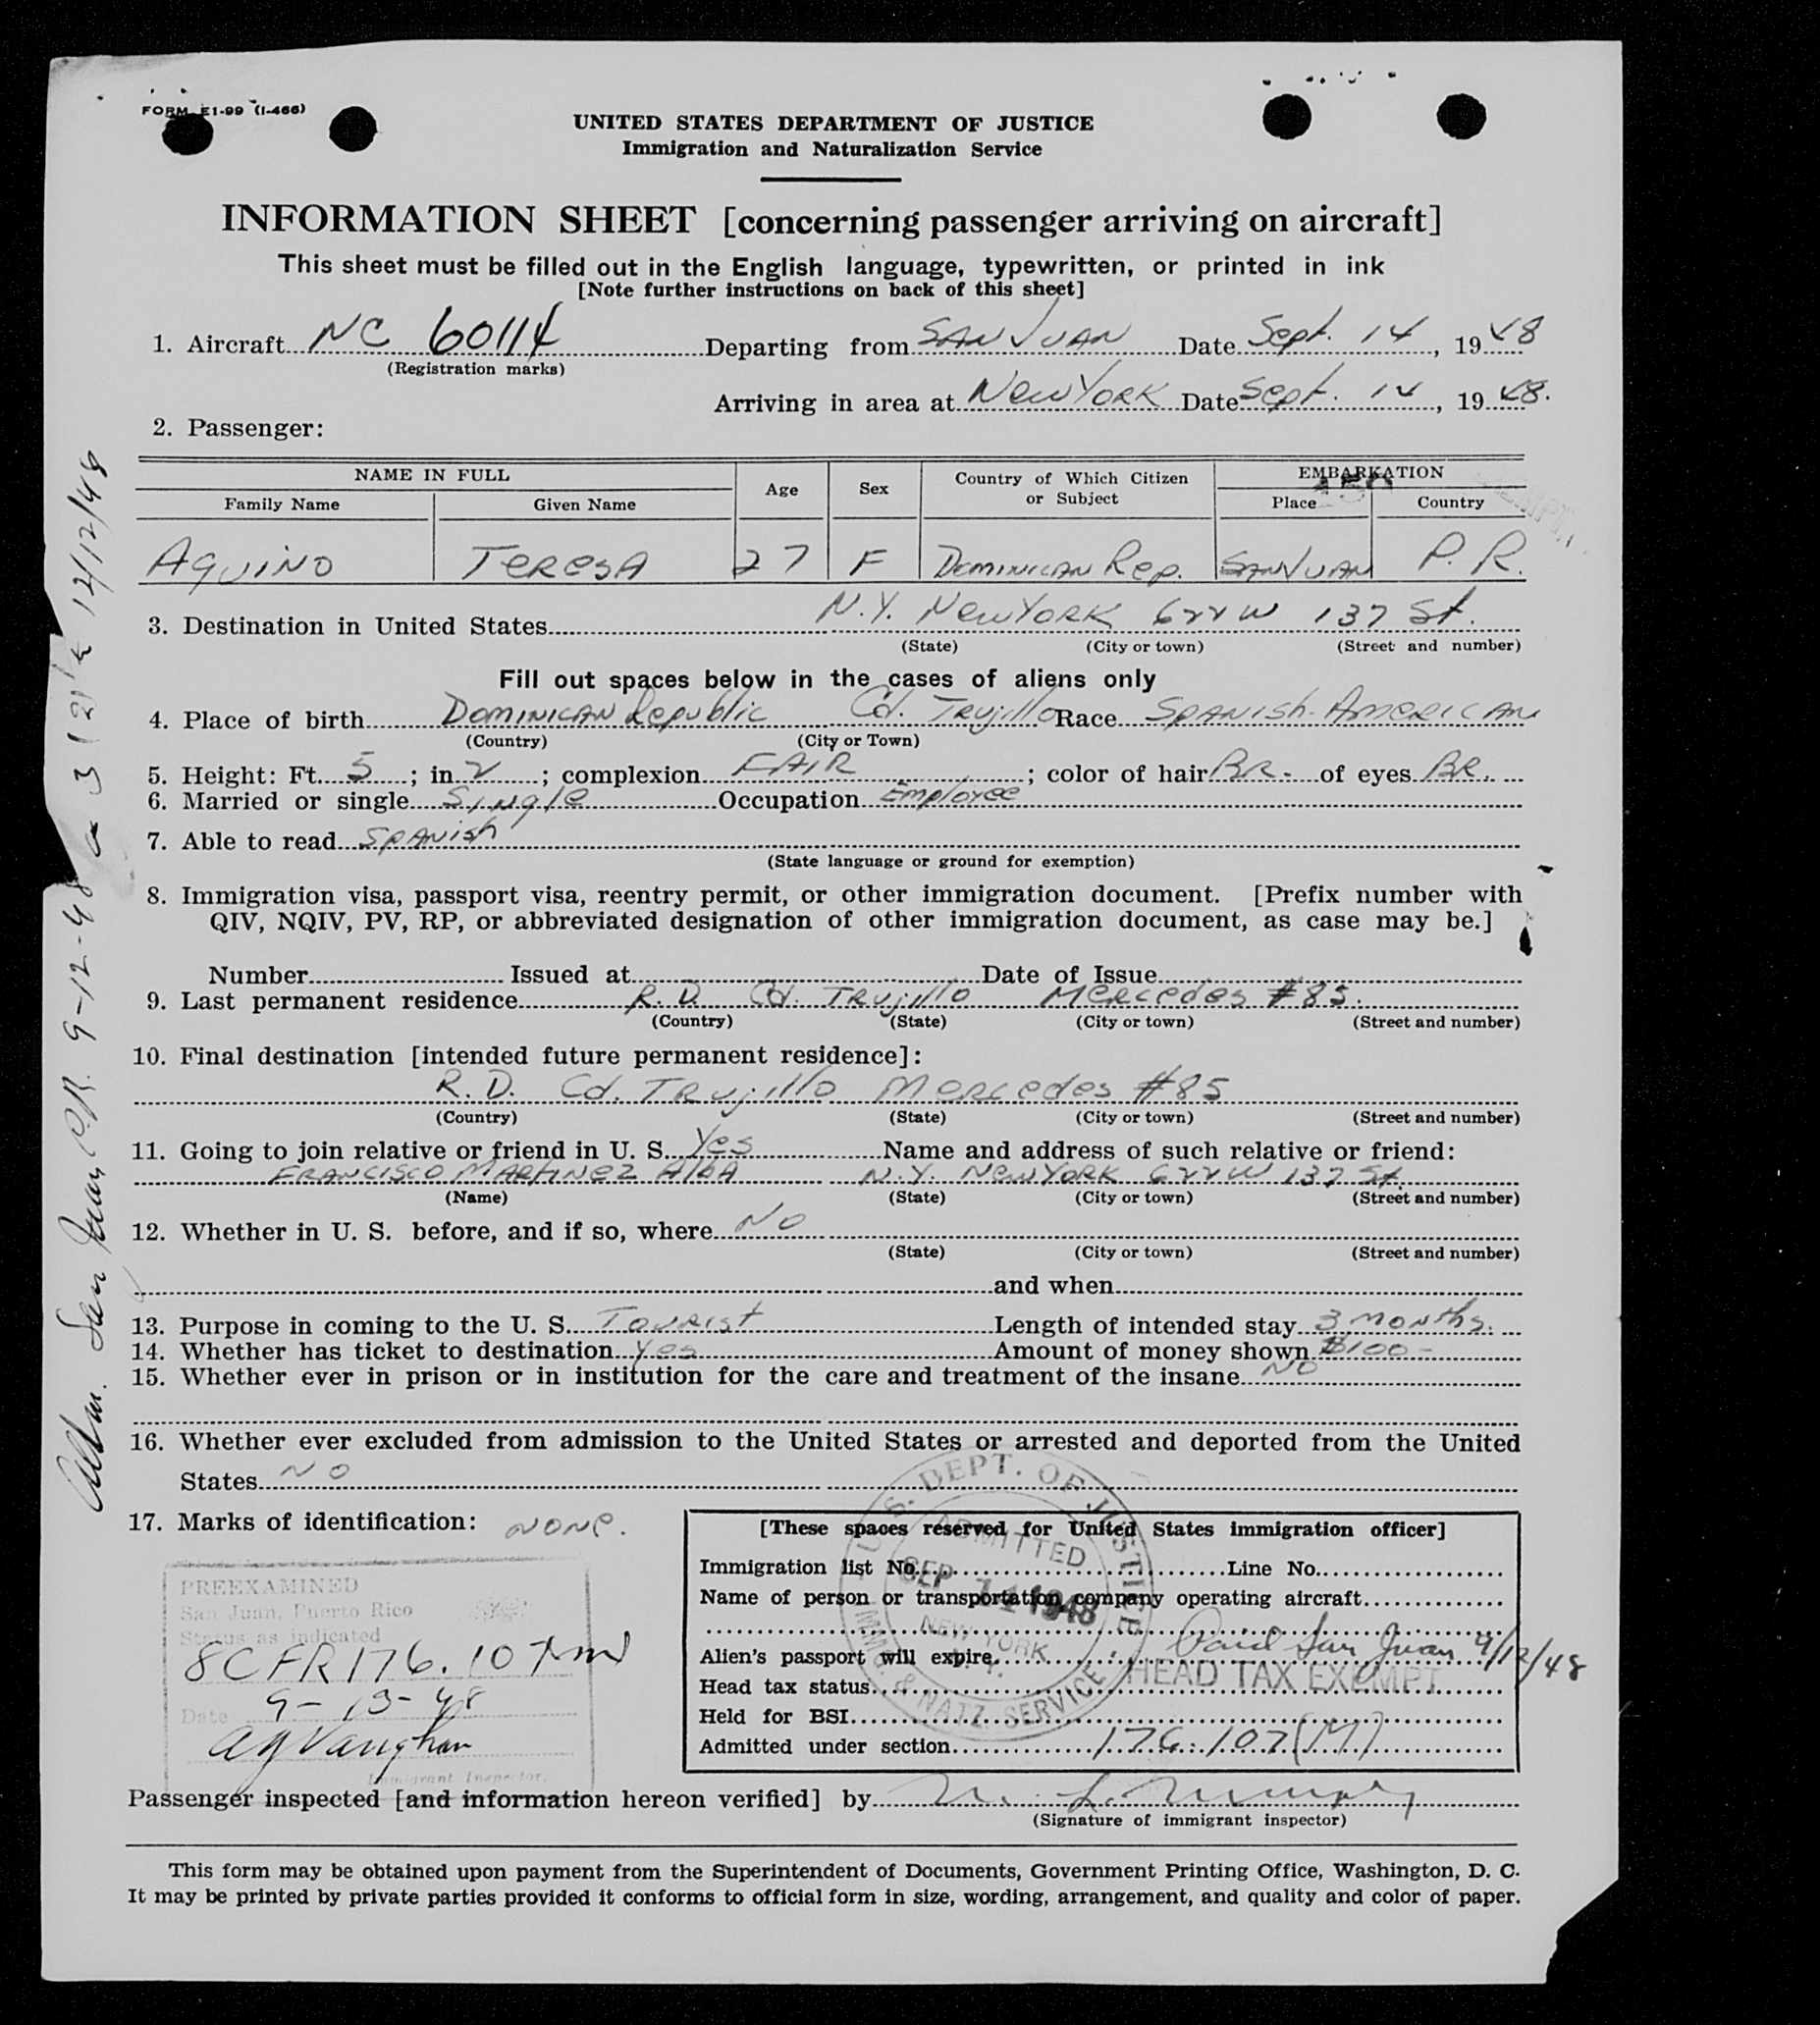 FORM E1-99 (I-466)
UNITED STATES DEPARTMENT OF JUSTICE
Immigration and Naturalization Service
INFORMATION SHEET [concerning passenger arriving on aircraft]
This sheet must be filled out in the English language, typewritten, or printed in ink
[Note further instructions on back of this sheet]
1. Aircraft NC 60114 Departing from SAN JUAN Date Sept. 14, 1948
(Registration marks)
Arriving in area at New York Date Sept. 14, 1948.
2. Passenger:
NAME IN FULL Age Sex Country of Which Citizen or Subject EMBARKATION
Family Name Given Name Place Country
Aquino Teresa 27 F Dominican Rep. San Juan P.R.
3. Destination in United States N.Y. New York 622 W 137 St.
(State) (City or town) (Street and number)
Fill out spaces below in the cases of aliens only
4. Place of birth Dominican Republic Cd. Trujillo Race Spanish-American
(Country) (City or Town)
5. Height: Ft. 5; in 2; complexion FAIR; color of hair Br. of eyes Br.
6. Married or single Single Occupation Employee
7. Able to read Spanish
(State language or ground for exemption)
8. Immigration visa, passport visa, reentry permit, or other immigration document. [Prefix number with
QIV, NQIV, PV, RP, or abbreviated designation of other immigration document, as case may be.]
Number Issued at Date of Issue
9. Last permanent residence R.D. Cd. Trujillo Mercedes #85.
(Country) (State) (City or town) (Street and number)
10. Final destination [intended future permanent residence]:
R.D. Cd. Trujillo Mercedes #85
(Country) (State) (City or town) (Street and number)
11. Going to join relative or friend in U. S. Yes Name and address of such relative or friend:
Francisco Martinez Alba N.Y. New York 622 W 137 St.
(Name) (State) (City or town) (Street and number)
12. Whether in U. S. before, and if so, where No
(State) (City or town) (Street and number)
and when
13. Purpose in coming to the U. S. Tourist Length of intended stay 3 months.
14. Whether has ticket to destination Yes Amount of money shown $100-
15. Whether ever in prison or in institution for the care and treatment of the insane No
16. Whether ever excluded from admission to the United States or arrested and deported from the United
States No
17. Marks of identification: None.
PREEXAMINED
San Juan, Puerto Rico
Status as indicated
8CFR176.107
Date 9-13-48
AG Vaughan
Immigrant Inspector.
[These spaces reserved for United States immigration officer]
Immigration list No. Line No.
Name of person or transportation company operating aircraft
Alien's passport will expire Paid San Juan 9/12/48
Head tax status HEAD TAX EXEMPT
Held for BSI
Admitted under section 176.107(M)
U.S. DEPT. OF JUSTICE
ADMITTED
SEP 14 1948
NEW YORK
IMMG. & NATZ. SERVICE
Passenger inspected [and information hereon verified] by
(Signature of immigrant inspector)
This form may be obtained upon payment from the Superintendent of Documents, Government Printing Office, Washington, D. C.
It may be printed by private parties provided it conforms to official form in size, wording, arrangement, and quality and color of paper.
Adm. San Juan P.R. 9-12-48 12/12/48